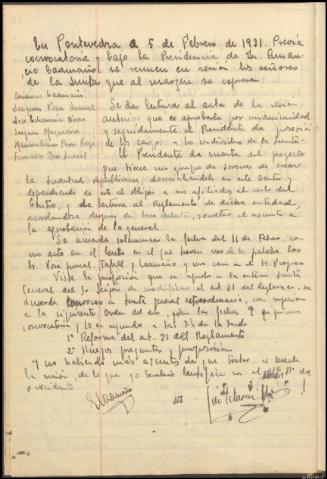 En Pontevedra a 5 de Febrero de 1931. Previa
convocatoria y bajo la Presidencia de Dn. Amancio
Caamaño, se reunen en sesión los señores
de la Junta que al margen se expresan:
Amancio Caamaño
Joaquin Poza Juncal
José Echeverría Novoa
Joaquin
Maximiliano Perez Prego
Francisco Juncal
Se da lectura al acta de la sesión
anterior que es aprobada por unanimidad
y seguidamente el Presidente da posesión
de los cargos a los individuos de la Junta.
El Presidente da cuenta del proyecto
que tiene un grupo de jovenes de crear
la Juventud republicana, domiciliandola en este Centro y
dependiendo de este al obligar a sus afiliados al resto del
Centro, y da lectura al Reglamento de dicha entidad
acordandose despues de luis debate, someter el asunto a
la aprobación de la general
Se acuerda solemnizar la fecha del 11 de Febrero, con
un acto en el Centro en el que haran uso de la palabra los
Sr. Poza Juncal, y Caamaño, y
Vista la proposición que es ayudo a la anterior Junta
General del 30 de modificar el art. 31 del Reglamento, se
acuerda convocar a Junta general extraordinaria, con sujección
a la siguiente orden del dia, para las fechas 9 en primera
convocatoria y 10 en segunda a las 7½ de la tarde
1º Reforma del art. 31 del Reglamento
2º Ruegos preguntas y proposiciones
Y no habiendo más asuntos de que tratar, se levanta
la sesión de lo que yo Secretario certifico con el Vº Bº del
presidente
ACaamaño
José Echeverría